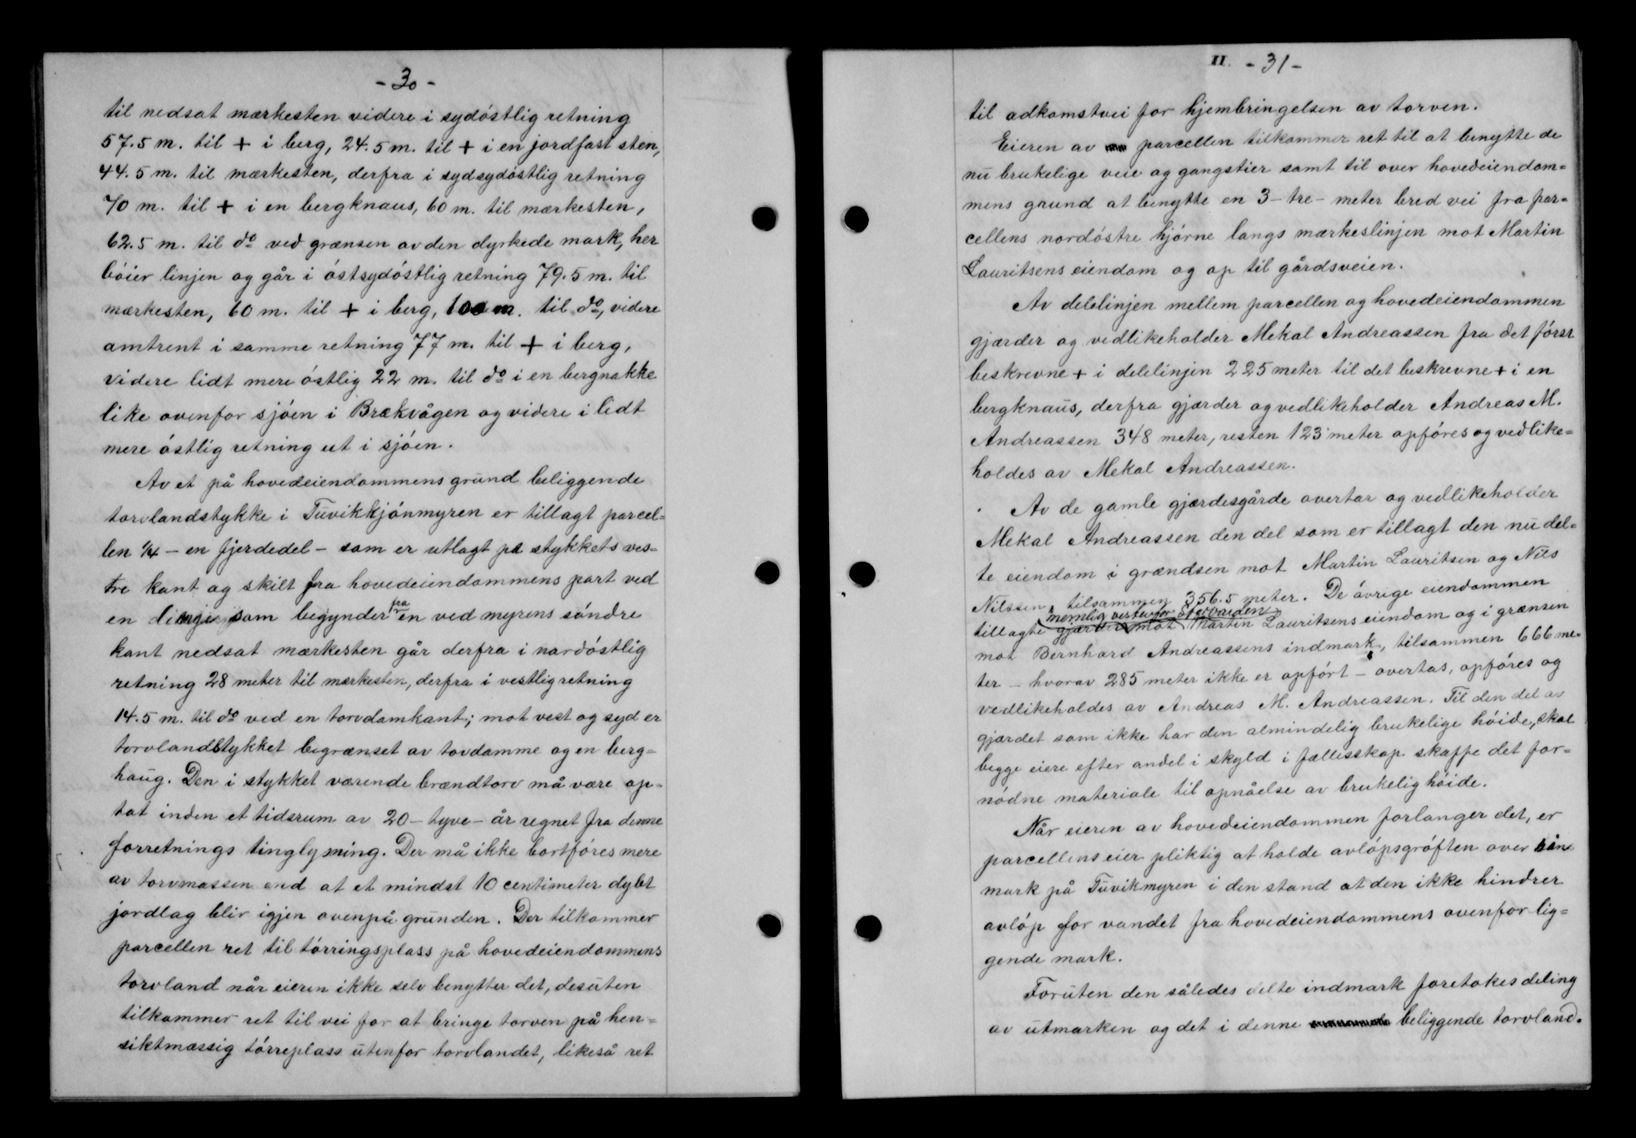 - 30 -
til nedsat mærkesten videre i sydöstlig retning
57.5 m. til + i berg, 24.5 m. til + i en jordfast sten,
44.5 m. til mærkesten, derfra i sydsydöstlig retning
70 m. til + i en bergknaus, 60 m. til mærkesten,
62.5 m. til do ved grænsen av den dyrkede mark, her
böier linjen og går i östsydöstlig retning 79.5 m. til
mærkesten, 60 m. til + i berg, 100 m. til do, videre
amtrent i samme retning 77 m. til + i berg,
videre lidt mere östlig 22 m. til do i en bergnakke
like ovenfor sjöen i Brækvågen og videre i lidt
mere östlig retning ut i sjöen.
Av et på hovedeiendommens grund beliggende
torvlandstykke i Tuvikkjönmyren er tillagt parcel=
len 1/4 - en fjerdedel - som er utlagt på stykkets ves=
tre kant og skilt fra hovedeiendommens part ved
en linje som begynder fra en ved myrens söndre
kant nedsat mærkesten går derfra i nordöstlig
retning 28 meter til mærkesten, derfra i vestlig retning
14.5 m. til do ved en torvdamkant; mot vest og syd er
torvlandstykket begrænset av tovdamme og en berg=
haug. Den i stykket værende brændtorv må være op=
tat inden et tidsrum av 20 - tyve - år regnet fra denne
forretnings tinglysning. Der må ikke bortföres mere
av torvmassen end at et mindst 10 centimeter dybt
jordlag blir igjen ovenpå grunden. Der tilkommer
parcellen ret til törringsplass på hovedeiendommens
torvland når eieren ikke selv benytter det, desuten
tilkommer ret til vei for at bringe torven på hen=
siktmæssig törreplass utenfor torvlandet, likeså ret
II - 31 -
til adkomstvei for hjembringelsen av torven.
Eieren av parcellen tilkommer ret til at benytte de
nu brukelige veie og gangstier samt til over hovedeiendom=
mens grund at benytte en 3 - tre - meter bred vei fra par=
cellens nordöstre hjörne langs mærkeslinjen mot Martin
Lauritsens eiendom og op til gårdsveien.
Av delelinjen mellem parcellen og hovedeiendommen
gjærder og vedlikeholder Mekal Andreassen fra det först
beskrevne + i delelinjen 225 meter til det beskrevne + i en
bergknaus, derfra gjærder og vedlikeholder Andreas M.
Andreassen 348 meter, resten 123 meter opföres og vedlike=
holdes av Mekal Andreassen.
Av de gamle gjærdesgårde overtar og vedlikeholder
Mekal Andreassen den del som er tillagt den nu del=
te eiendom i grændsen mot Martin Lauritsen og Nils
Nilssen, tilsammen 356.5 meter. De övrige eiendommen
nemlig vestenfor
tillagte gjærder mot Martin Lauritsens eiendom og i grænsen
mot Bernhard Andreassens indmark, tilsammen 666 me=
ter - hvorav 285 meter ikke er opfört - overtas, opföres og
vedlikeholdes av Andreas M. Andreassen. Til den del av
gjærdet som ikke har den almindelig brukelige höide, skal
begge eiere efter andel i skyld i fællesskap skaffe det for=
nödne materiale til opnåelse av brukelig höide.
Når eieren av hovedeiendommen forlanger det, er
parcellens eier pliktig at holde avlöpsgröften over sin
mark på Tuvikmyren i den stand at den ikke hindrer
avlöp for vandet fra hovedeiendommens ovenfor lig=
gende mark.
Foruten den således delte indmark foretakes deling
av utmarken og det i denne beliggende torvland.